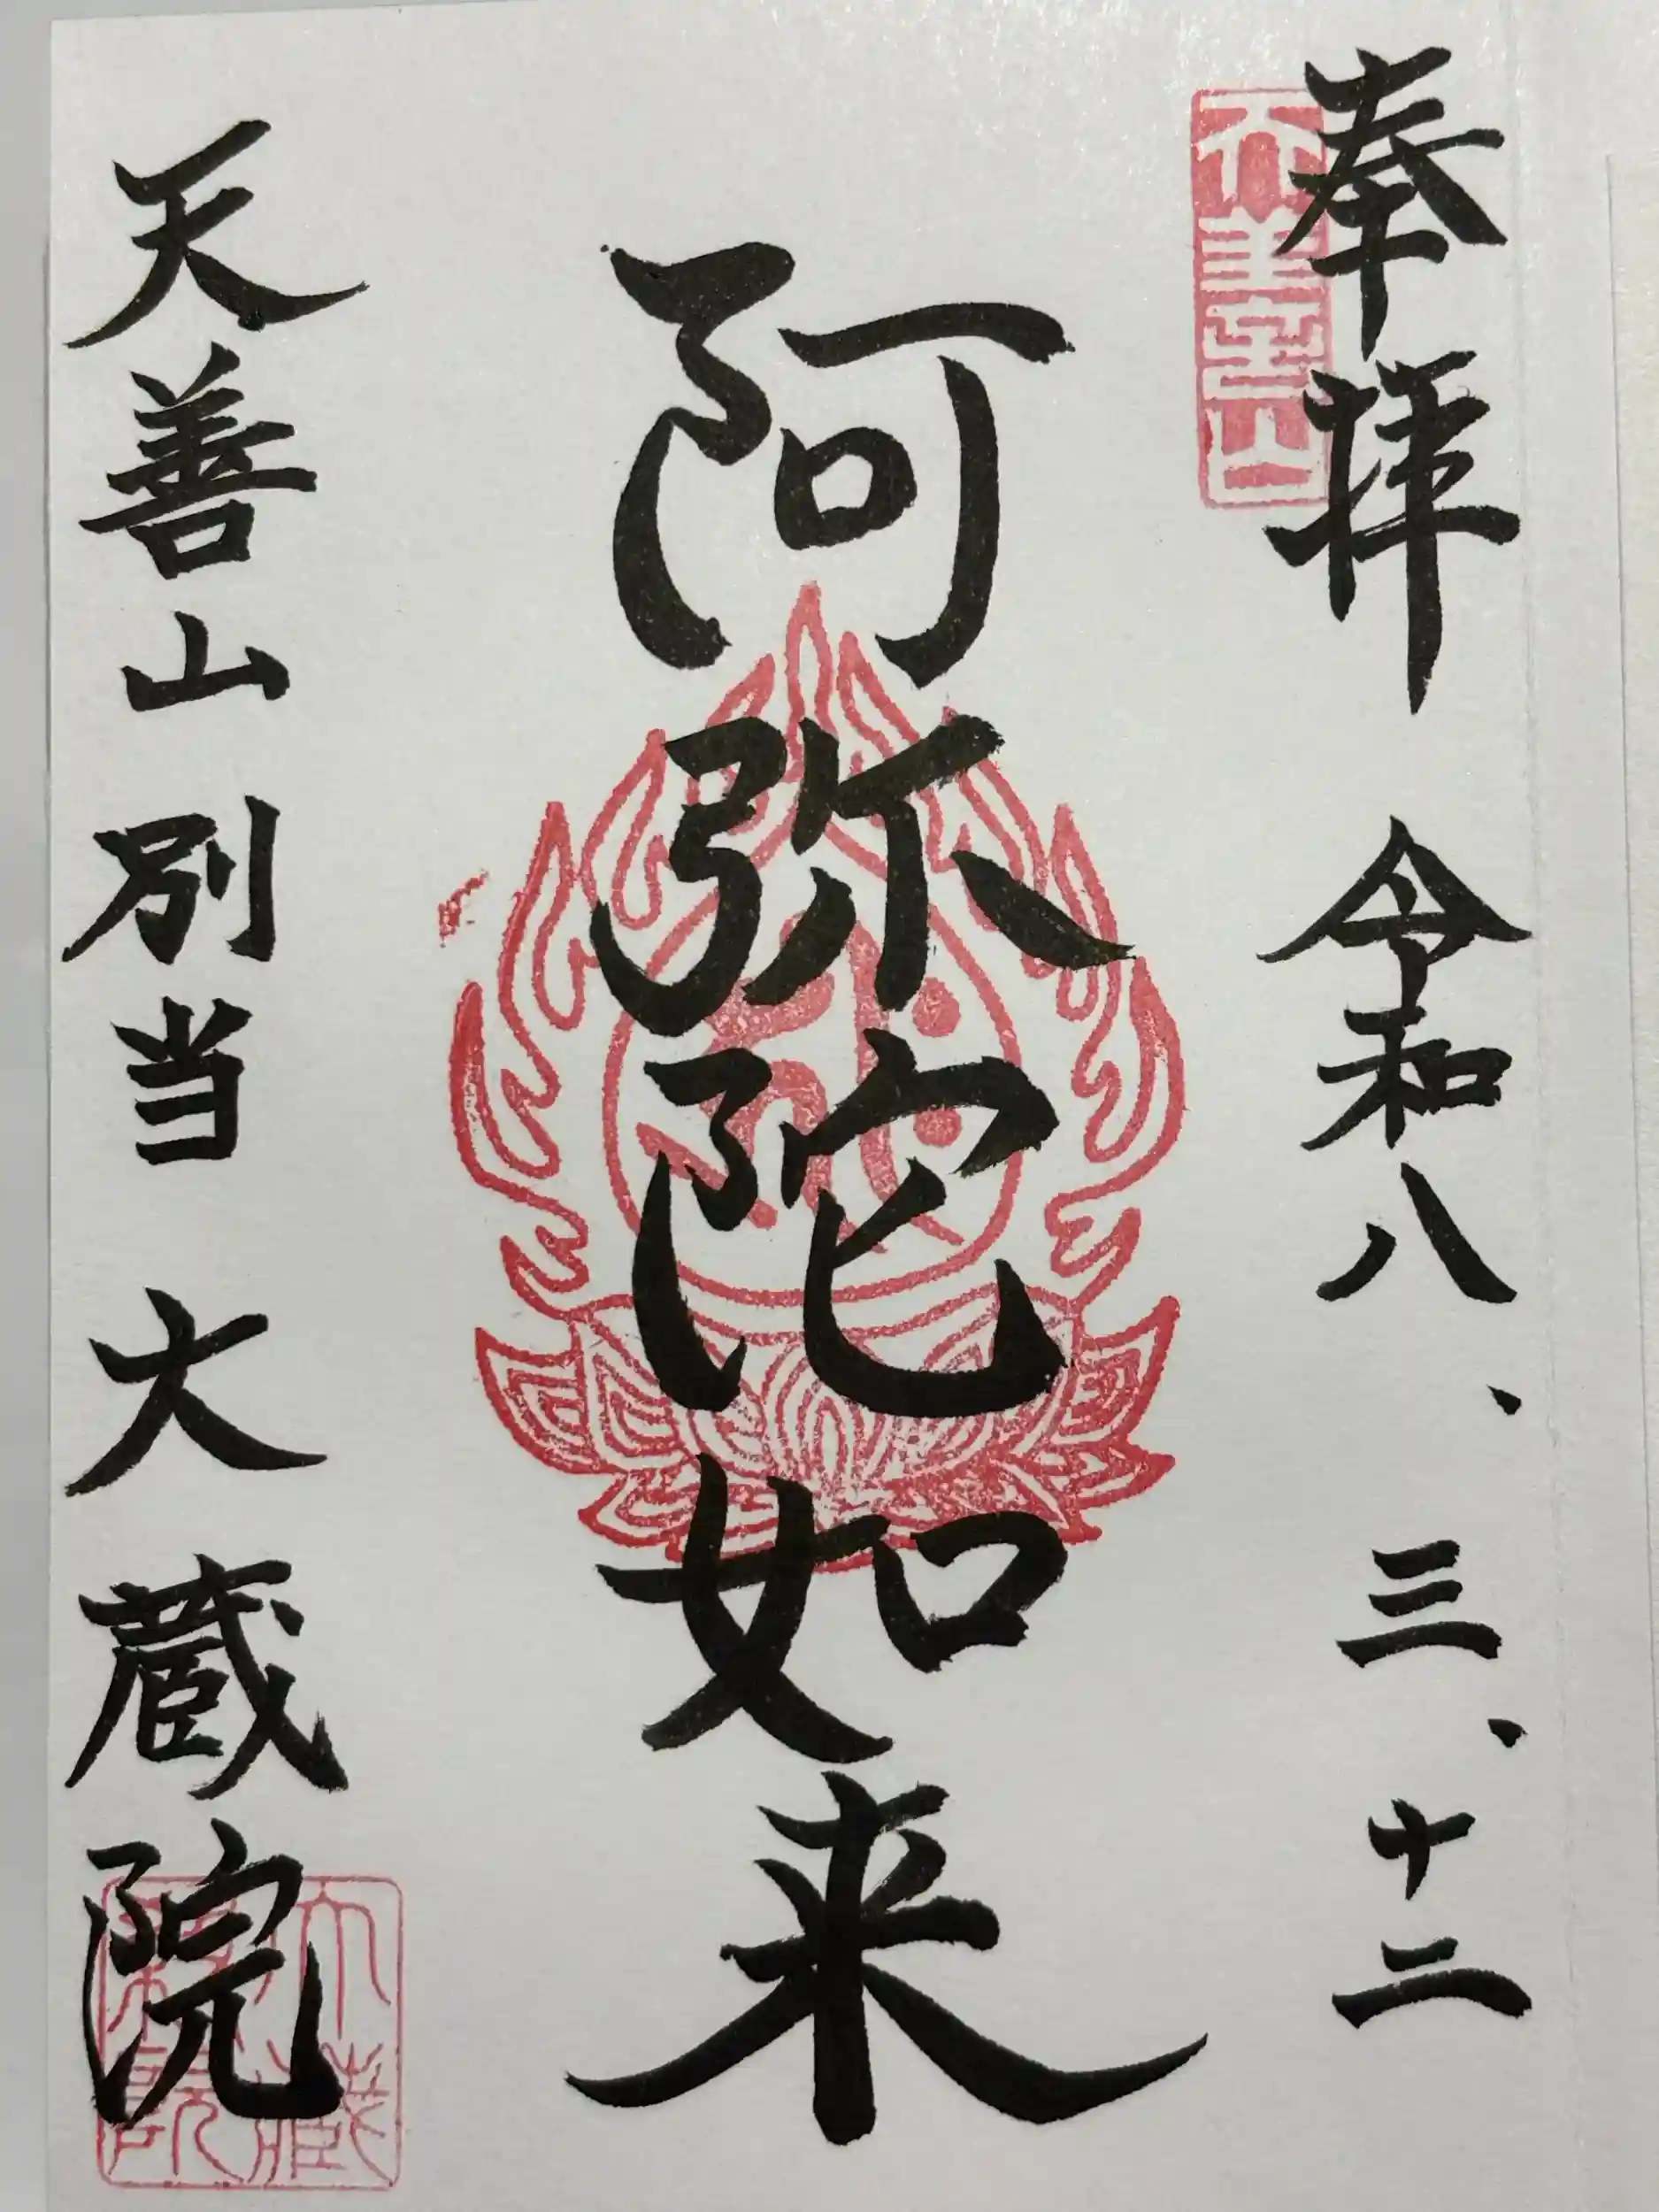 奉拝 令和八、三、十二
天善山
阿弥陀如来
天善山別当 大蔵院